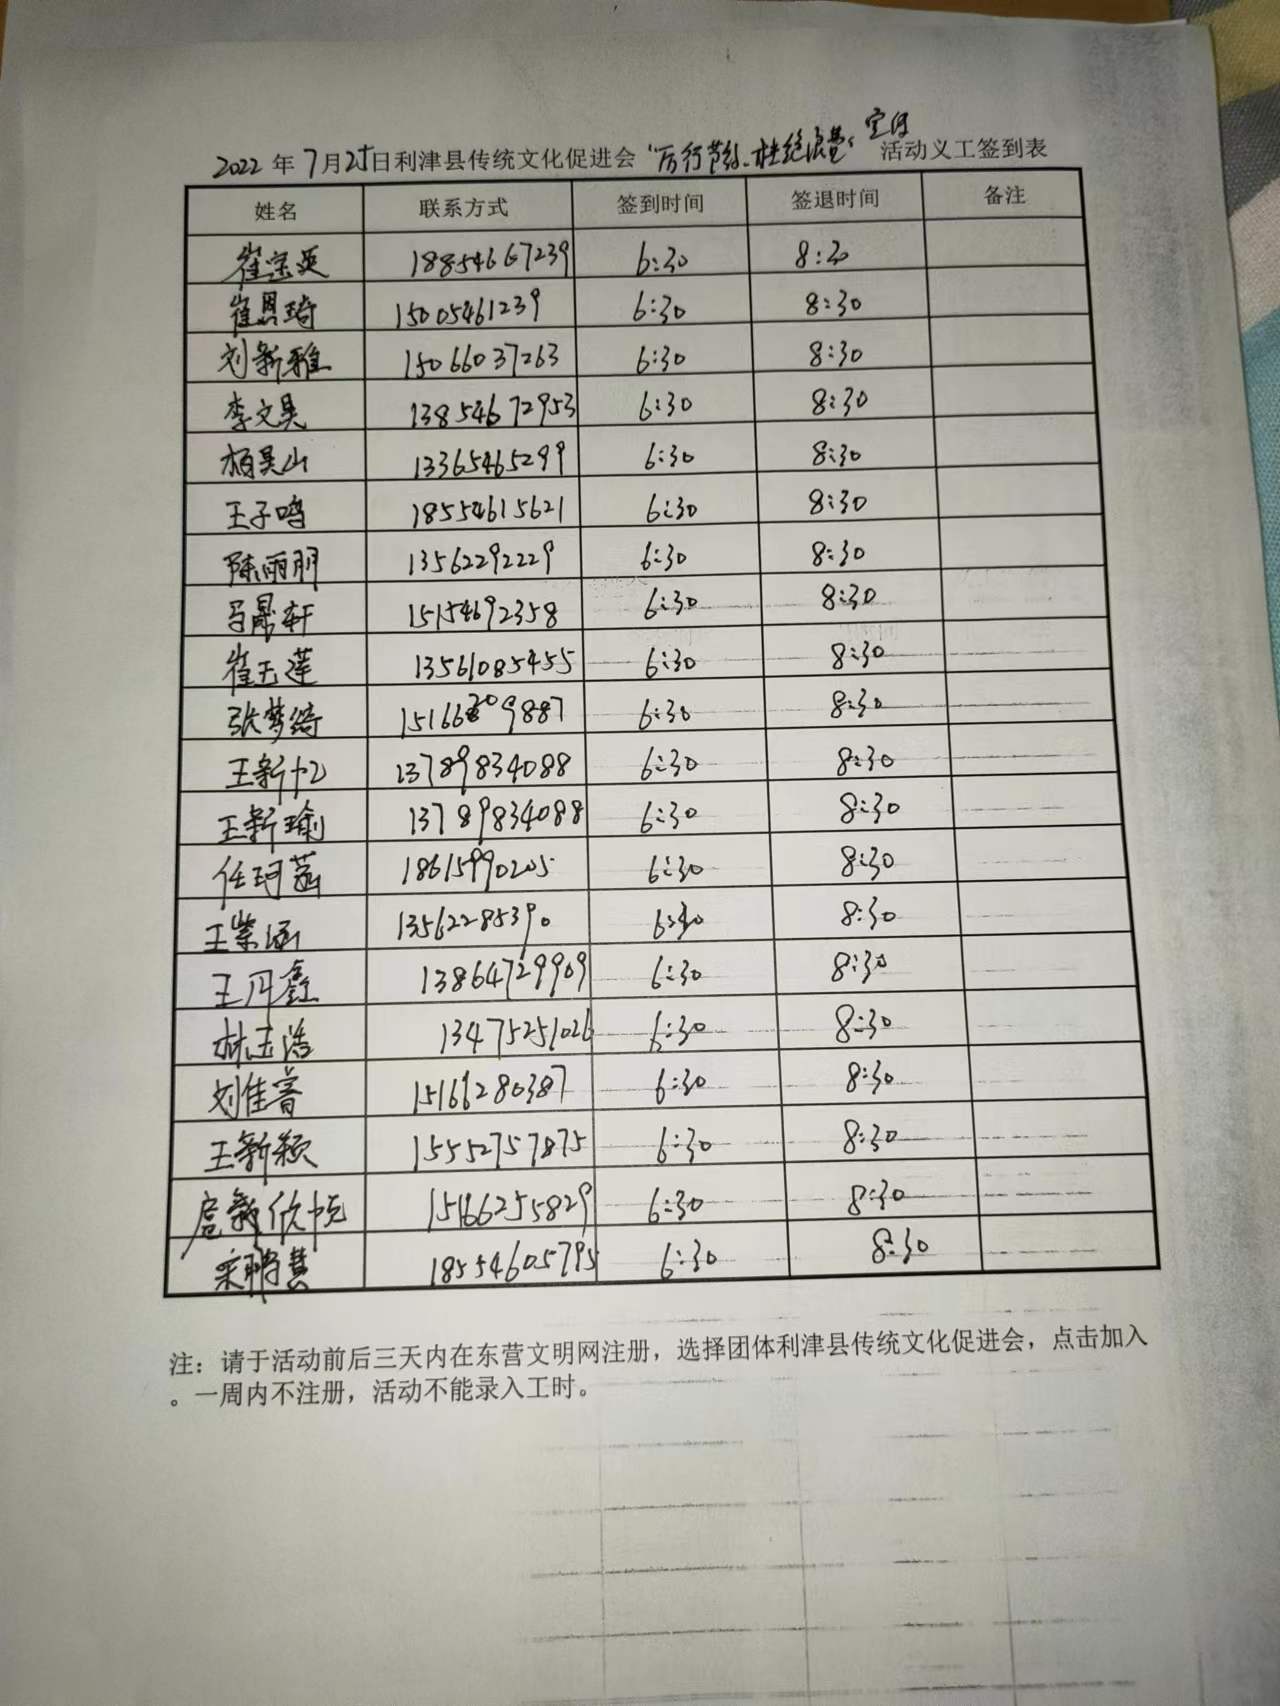 2022年7月25日利津县传统文化促进会"厉行节约、杜绝浪费"宣传活动义工签到表
姓名 联系方式 签到时间 签退时间 备注
崔宝英 18854667239 6:30 8:30
崔恩琦 15005461239 6:30 8:30
刘新雅 15066037263 6:30 8:30
李文昊 13854672953 6:30 8:30
杨昊山 13365465299 6:30 8:30
王子鸣 18554615621 6:30 8:30
陈雨朋 13562292229 6:30 8:30
马鼎轩 15154692358 6:30 8:30
崔玉莲 13561085455 6:30 8:30
张梦绮 15166309887 6:30 8:30
王新 13789834088 6:30 8:30
王新瑜 13789834088 6:30 8:30
任珂菡 18615990205 6:30 8:30
王紫涵 13562285390 6:30 8:30
王丹鑫 13864729909 6:30 8:30
林玉浩 13475251026 6:30 8:30
刘佳音 15166280387 6:30 8:30
王新颖 15552757875 6:30 8:30
15166255829 6:30 8:30
宋鹏慧 18554605795 6:30 8:30
注：请于活动前后三天内在东营文明网注册，选择团体利津县传统文化促进会，点击加入
。一周内不注册，活动不能录入工时。